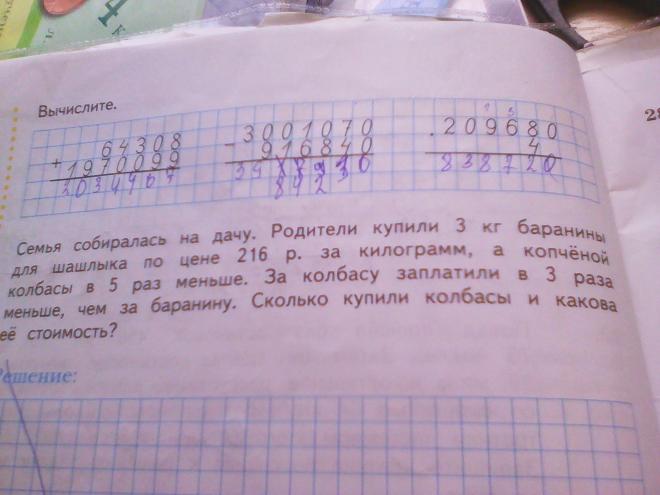 Вычислите.
+ 64308 - 3001070 · 209680
1970099 916840 4
2034407 838720
Семья собиралась на дачу. Родители купили 3 кг баранины
для шашлыка по цене 216 р. за килограмм, а копчёной
колбасы в 5 раз меньше. За колбасу заплатили в 3 раза
меньше, чем за баранину. Сколько купили колбасы и какова
её стоимость?
Решение: